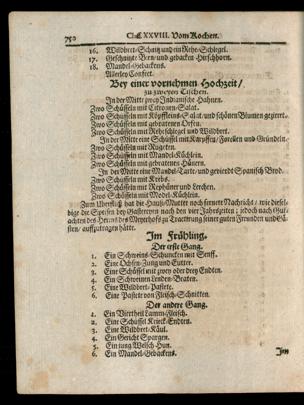 750 Claſſ. XXVIII. Vom Kochen.
16. Wildbret-Schnitz und ein Rehe-Schlegel.
17. Geſchnitzte Bern- und gebacken Hirſchhorn.
18. Mandel-Gebackens.
Allerley Confect.
Bey einer vornehmen Hochzeit/
zu zweyen Tiſchen.
In der Mitte zween Indianiſche Hahnen.
Zwo Schüſſeln mit Citronen-Salat.
Zwo Schüſſeln mit Köpffleins-Salat, und ſchönen Blumen gezieret.
Zwo Schüſſeln mit gebratenen Orfen.
Zwo Schüſſeln mit Rehe-Schlegel und Wildbret.
In der Mitte eine Schüſſel mit Karpffen/ Forellen und Gründeln.
Zwo Schüſſeln mit Rugeten.
Zwo Schüſſeln mit Mandel-Küchlein.
Zwo Schüſſeln mit gebratenen Hünern.
In der Mitte eine Mandel-Tarte, und gevierdt Spaniſch Brod.
Zwo Schüſſeln mit Krebs.
Zwo Schüſſeln mit Rephüner und Lerchen.
Zwo Schüſſeln mit Model-Küchlein.
Zum Uberfluß hat die Hauß-Mutter noch fernere Nachricht/ wie dieſelbige
die Speiſen bey Gaſtereyen nach den vier Jahrszeiten/ jedoch nach Gutachten
des Herrns des Meyerhofs zu Tractirung ſeiner guten Freunden und Gäſten/
aufftragen hätte.
Im Frühling.
Der erſte Gang.
1. Ein Schweins-Schuncken mit Senff.
2. Eine Ochſen-Zung und Eutter.
3. Eine Schüſſel mit zwey oder drey Endten.
4. Ein Schweinen Lenden-Braten.
5. Eine Wildbret-Paſtete.
6. Eine Paſtete von Fleiſch-Schnitten.
Der andere Gang.
1. Ein Viertheil Lamm-Fleiſch.
2. Eine Schüſſel Krieck-Endten.
3. Eine Wildbret-Käul.
4. Ein Gericht Spargen.
5. Ein jung Welſch-Hun.
6. Ein Mandel-Gebackens.
Im